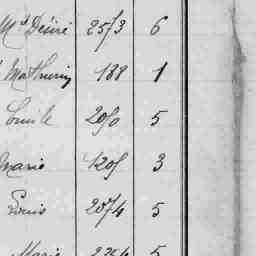 Md Désiré 2573 6
Mathurin 138 1
Emile 2070 5
Marie 1205 3
Louis 2074 5
Marie 5